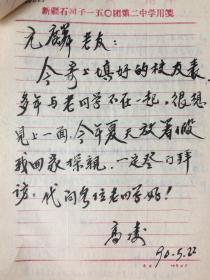 新疆石河子一五〇团第二中学用笺
元麟老友：
今寄上填好的校友表，
多年与老同学不在一起，很想
见上一面，今年夏天放暑假
我回家探親，一定登门拜
访。代向各位老同学好！
高
90.5.22